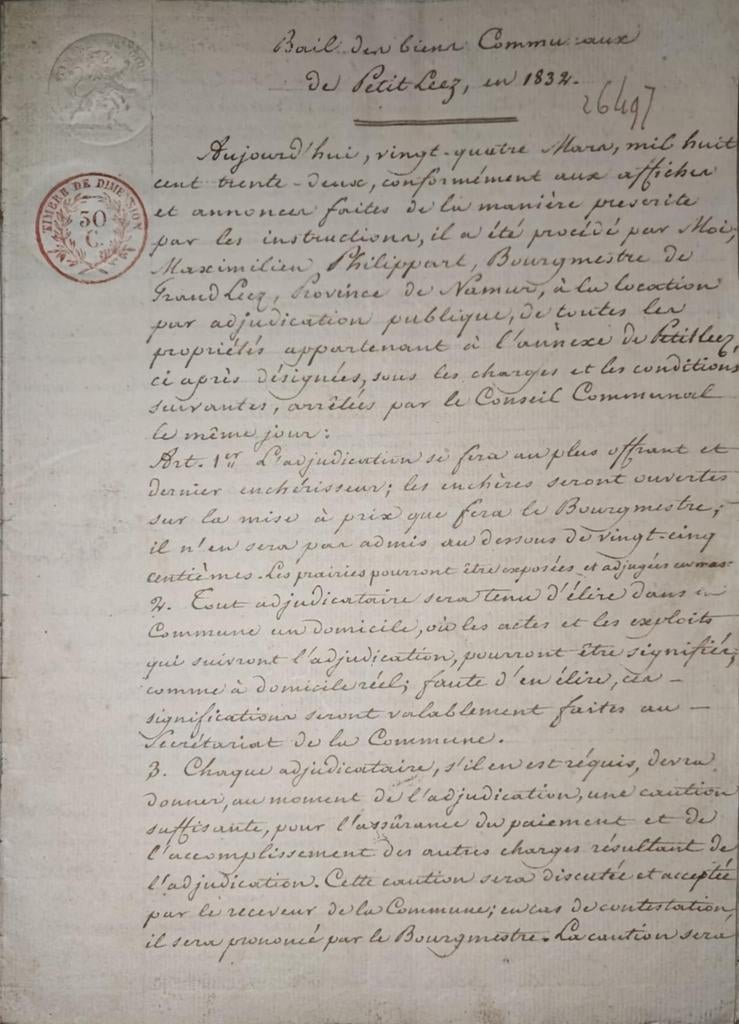 Bail des biens Communaux
de Petit Leez, en 1832.
26497
TIMBRE DE DIMENSION
50
C.
Aujourd'hui, vingt-quatre Mars, mil huit
cent trente-deux, conformément aux affiches
et annonces faites de la manière prescrite
par les instructions, il a été procédé par Moi,
Maximilien Philippart, Bourgmestre de
Grand Leez, Province de Namur, à la location
par adjudication publique, de toutes les
propriétés appartenant à l'annèxe de Petit leez,
ci après désignées, sous les charges et les conditions
suivantes, arrêtées par le Conseil Communal
le même jour:
Art. 1er L'adjudication se fera au plus offrant et
dernier enchérisseur; les enchères seront ouvertes
sur la mise à prix que fera le Bourgmestre;
il n'en sera pas admis au dessous de vingt-cinq
centièmes. Les prairies pourront être exposées et adjugées en masse
2. Tout adjudicataire sera tenu d'élire dans la
Commune un domicile, où les actes et les exploits
qui suivront l'adjudication, pourront être signifiés,
comme à domicile réel; faute d'en élire, ces —
significations seront valablement faites au —
Secrétariat de la Commune.
3. Chaque adjudicataire, s'il en est réquis, devra
donner, au moment de l'adjudication, une caution
suffisante, pour l'assûrance du paiement et de
l'accomplissement des autres charges résultant de
l'adjudication. Cette caution sera discutée et acceptée
par le receveur de la Commune; en cas de contestation,
il sera prononcé par le Bourgmestre. La caution sera